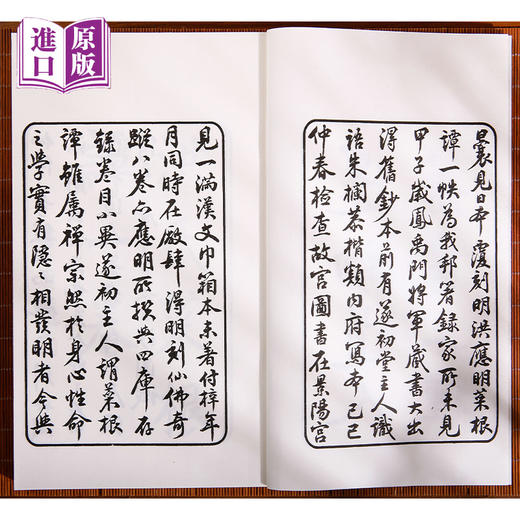 原版
進口
曩見日本覆刻明洪應明菜根
譚一帙為我邦著録家所未見
甲子歲鳳禹門將軍藏書大出
淂舊鈔本前有遂初堂主人識
語朱欄恭楷類内府寫本己巳
仲春檢查故宮圖書在景陽宮
見一滿漢文巾箱本未著付梓年
月同時在廠肆淂明刻仙佛奇
蹤八卷亦應明所撰與四庫存
録卷目小異遂初主人謂菜根
譚雖屬禪宗然於身心性命
之學實有隱〻相發明者今與